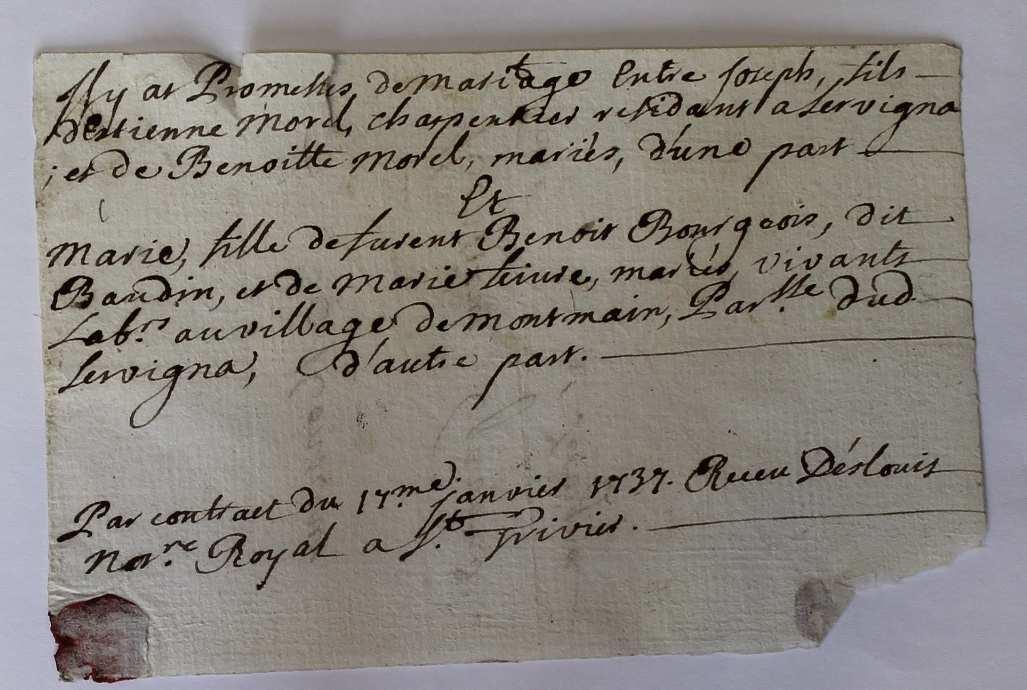 Il y at Promesses de mariage Entre Joseph, fils
d'estienne Morel, charpentier residant a Servigna
; et de Benoitte Morel, mariés, d'une part
Et
Marie, fille de furent Benoit Bourgeois, dit
Baudin, et de Marie feivre, mariés, vivants
Labrs. au village de Montmain, Parsse. dud
Servigna, d'autre part.
Par contract du 17.me Janvier 1737. Receu Déslouis
Nore. Royal a St. Trivier.